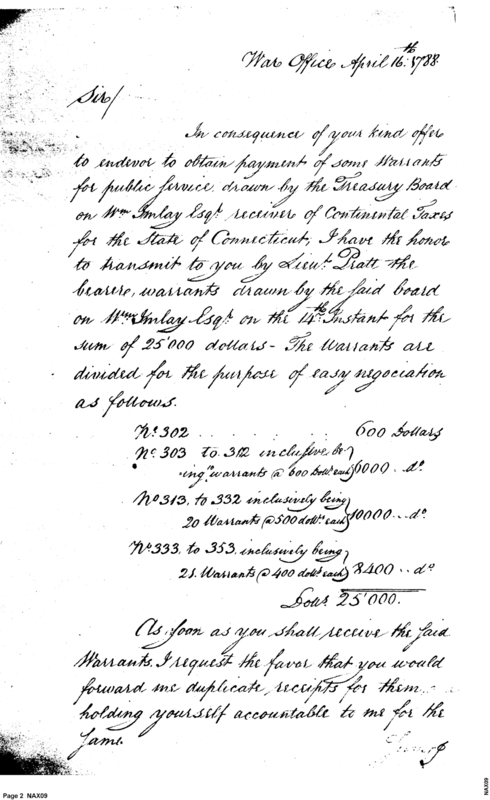 War Office April 16.th 1788
Sir/
In consequence of your kind offer
to endevor to obtain payment of some Warrants
for public Service drawn by the Treasury Board
on Wm Imlay Esqr. receiver of Continental Taxes
for the State of Connecticut, I have the honor
to transmit to you by Lieut. Pratt the
bearere, warrants drawn by the said board
on Wm Imlay Esqr. on the 14th Instant for the
sum of 25'000 dollars - The Warrants are
divided for the purpose of easy negociation
as follows.
No. 302 . . . . . . . 600 Dollars
No. 303 to 312 inclusive be-
ing warrants @ 600 Dolls. each 6000 . do.
No 313, to 332 inclusively being
20 Warrants @ 500 dolls. each 10000 .. do.
No. 333, to 353, inclusively being
21. Warrants @ 400 dolls. each 8400 .. do
Dolls. 25'000.
As soon as you shall receive the said
Warrants, I request the favor that you would
forward me duplicate receipts for them
holding yourself accountable to me for the
same.
Page 2 NAX09
NAX09